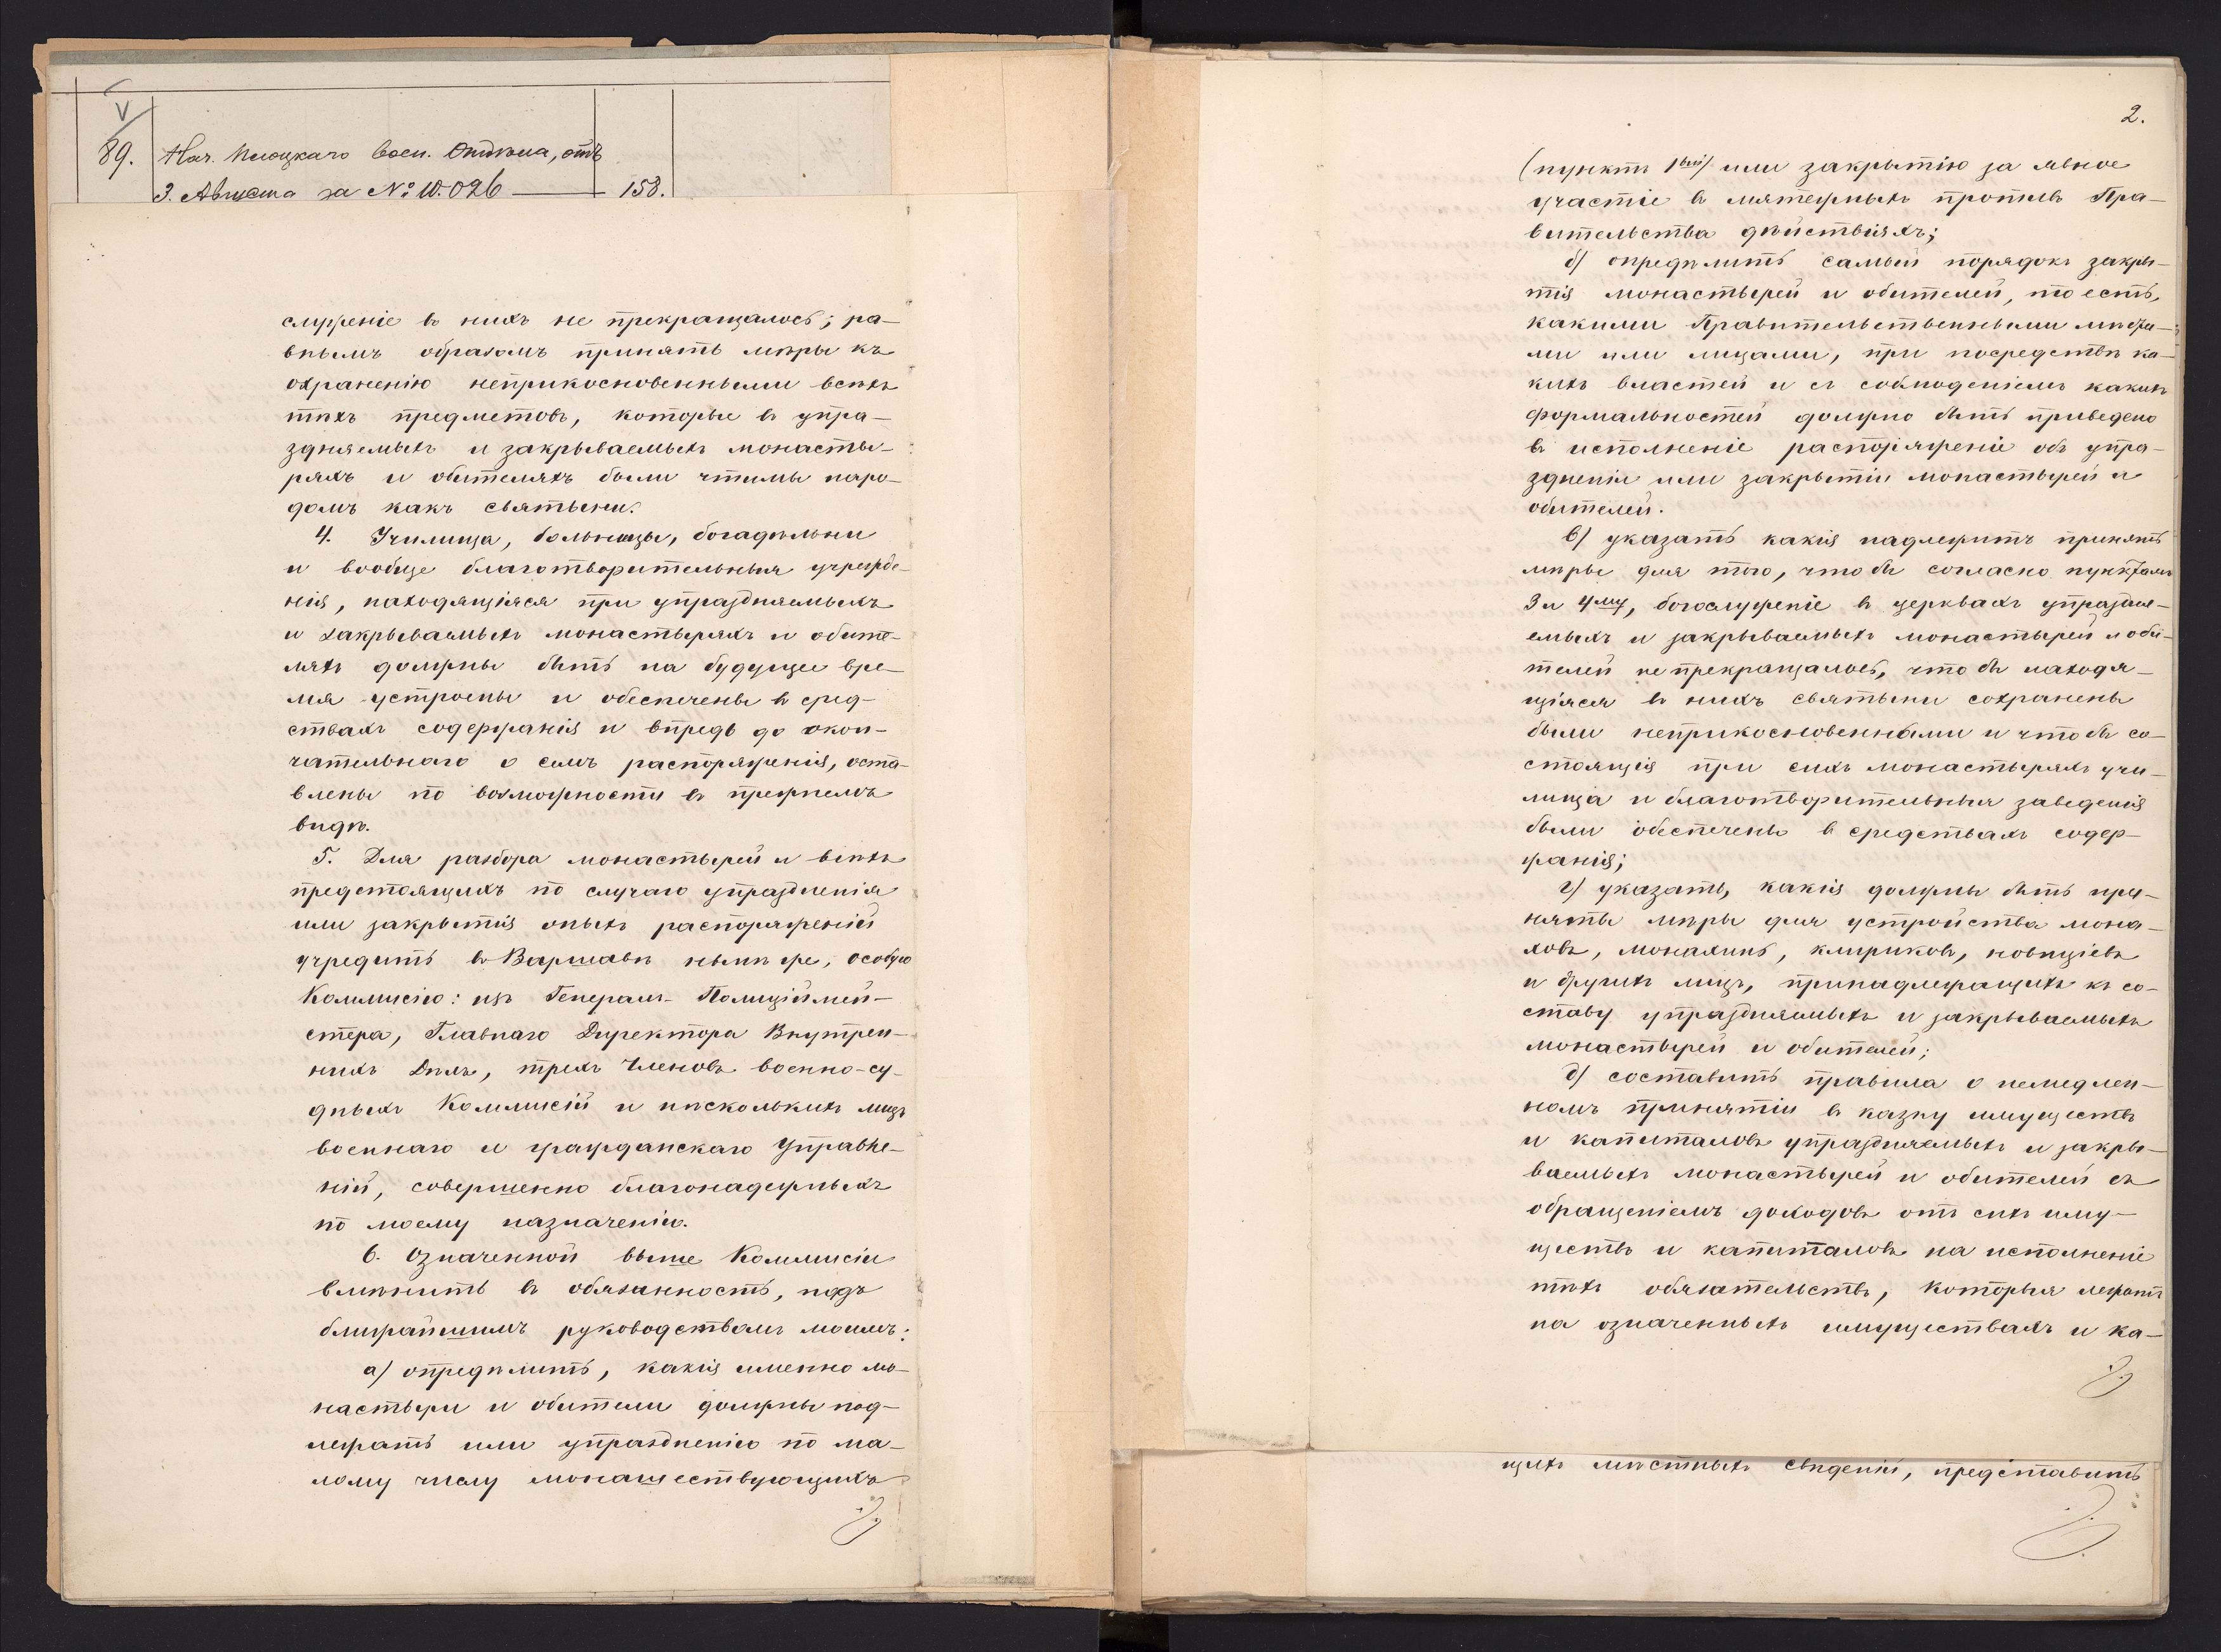 89. Нач. Плоцкаго воен. Отдѣла, отъ
3. Августа за № 10.026 — 158.
служеніе въ нихъ не прекращалось; ра-
внымъ образомъ принять мѣры къ
охраненію неприкосновенными всѣхъ
тѣхъ предметовъ, которые въ упра-
здняемыхъ и закрываемыхъ монасты-
ряхъ и обителяхъ были чтимы наро-
домъ какъ святыни.
4. Училища, больницы, богадѣльни
и вообще благотворительныя учрежде-
нія, находящіяся при упраздняемыхъ
и закрываемыхъ монастыряхъ и обите-
ляхъ должны быть на будущее вре-
мя устроены и обеспечены въ сред-
ствахъ содержанія и впредь до окон-
чательнаго о семъ распоряженія, оста-
влены по возможности въ прежнемъ
видѣ.
5. Для разбора монастырей и всѣхъ
предстоящихъ по случаю упраздненія
или закрытія оныхъ распоряженій
учредить въ Варшавѣ нынѣ же, особую
Коммисію: изъ Генералъ-Полиціймей-
стера, Главнаго Директора Внутрен-
нихъ Дѣлъ, трехъ Членовъ военно-су-
дныхъ Коммисій и нѣсколькихъ лицъ
военнаго и гражданскаго Управле-
ній, совершенно благонадежныхъ
по моему назначенію.
6. Означенной выше Коммисіи
вмѣнить въ обязанность, подъ
ближайшимъ руководствомъ моимъ:
а) опредѣлить, какія именно мо-
настыри и обители должны под-
лежать или упраздненію по ма-
лому числу монашествующихъ
2.
(пунктъ 1вый) или закрытію за явное
участіе въ мятежныхъ противъ Пра-
вительства дѣйствіяхъ;
б) опредѣлить самый порядокъ закры-
тія монастырей и обителей, то есть,
какими Правительственными мѣста-
ми или лицами, при посредствѣ ка-
кихъ властей и съ соблюденіемъ какихъ
формальностей должно быть приведено
въ исполненіе распоряженіе объ упра-
здненіи или закрытіи монастырей и
обителей.
в) указать какія надлежитъ принять
мѣры для того, что бы согласно пунктамъ
3 и 4му, богослуженіе въ церквахъ упраздня-
емыхъ и закрываемыхъ монастырей и оби-
телей не прекращалось, что бы находя-
щіяся въ нихъ святыни сохранены
были неприкосновенными и что бы со-
стоящія при сихъ монастыряхъ учи-
лища и благотворительныя заведенія
были обеспечены въ средствахъ содер-
жанія;
г) указать, какія должны быть при-
няты мѣры для устройства мона-
ховъ, монахинь, клириковъ, новиціевъ
и другихъ лицъ, принадлежащихъ къ со-
ставу упраздняемыхъ и закрываемыхъ
монастырей и обителей;
д) составить правила о немедлен-
номъ принятіи въ казну имуществъ
и капиталовъ упраздняемыхъ и закры-
ваемыхъ монастырей и обителей съ
обращеніемъ доходовъ отъ сихъ иму-
ществъ и капиталовъ на исполненіе
тѣхъ обязательствъ, которыя лежатъ
на означенныхъ имуществахъ и ка-
щихъ мѣстныхъ свѣденій, представить